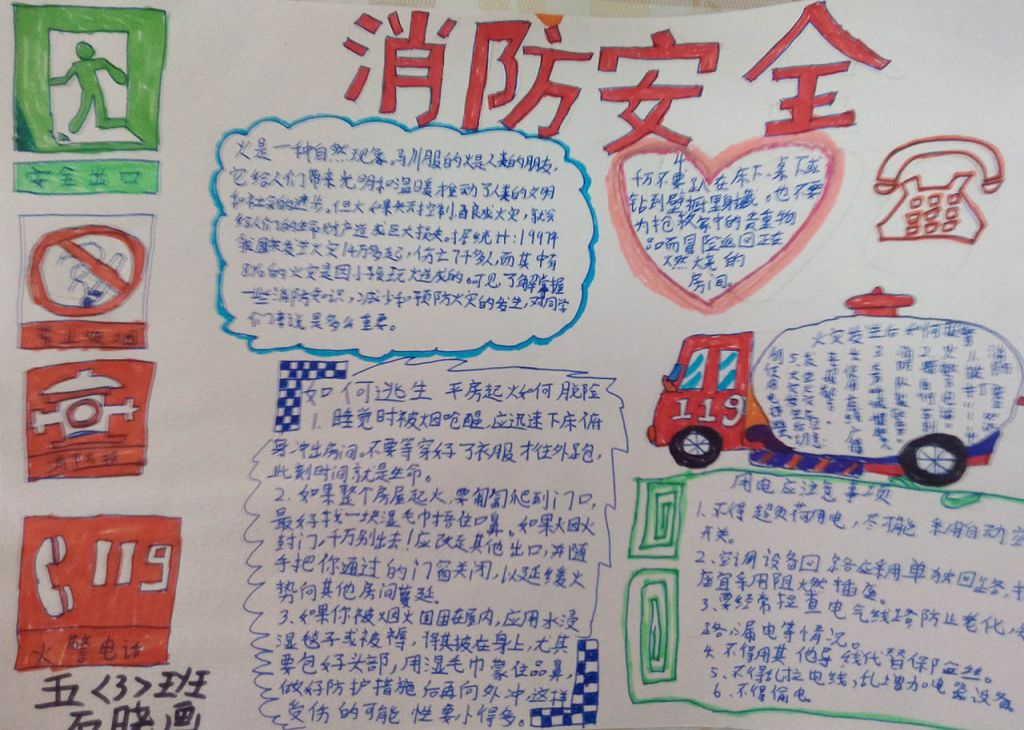 消防安全
安全出口
禁止吸烟
消防栓
119
火警电话
五<3>班
火是一种自然现象,
的火是人类的朋友,
它给人们带来光明和温暖推动了人类的文明
和社会的进步。但火如果失去控制,酿成火灾,就会
给人们的生命财产造成巨大损失。据统计:1997年
我国共发生火灾14万多起,伤亡7千多人,而其中有
8%的火灾是因小孩玩火造成的。可见,了解掌握
一些消防知识,减少和预防火灾的发生,对同学
们来说是多么重要。
千万不要趴在床下、桌下或
钻到壁橱里躲藏。也不要
为抢救家中的贵重物
品而冒险返回正在
燃烧的
房间。
119
火灾发生后如何报警
如何逃生 平房起火如何脱险
1.睡觉时被烟呛醒,应迅速下床俯
身冲出房间。不要等穿好了衣服才往外跑,
此刻时间就是生命。
2.如果整个房屋起火,要匍匐爬到门口,
最好找一块湿毛巾捂住口鼻。如果烟火
封门,千万别出去!应改走其他出口,并随
手把你通过的门窗关闭,以延缓火
势向其他房间蔓延。
3.如果你被烟火围困在屋内,应用水浸
湿毯子或被褥,将其披在身上,尤其
要包好头部,用湿毛巾蒙住品鼻,
做好防护措施后再向外冲,这样
受伤的可能性要小得多。
用电应注意事项
1.不得超负荷用电,尽可能采用自动空
开关。
2.空调设备回路应采用单独回路,
座宜采用阻火燃插座。
3.要经常检查电气线路防止老化,
路、漏电等情况。
4.不得用其他导线代替保险丝。
5.不得乱拉电线,乱增加电器设备。
6.不得偷电